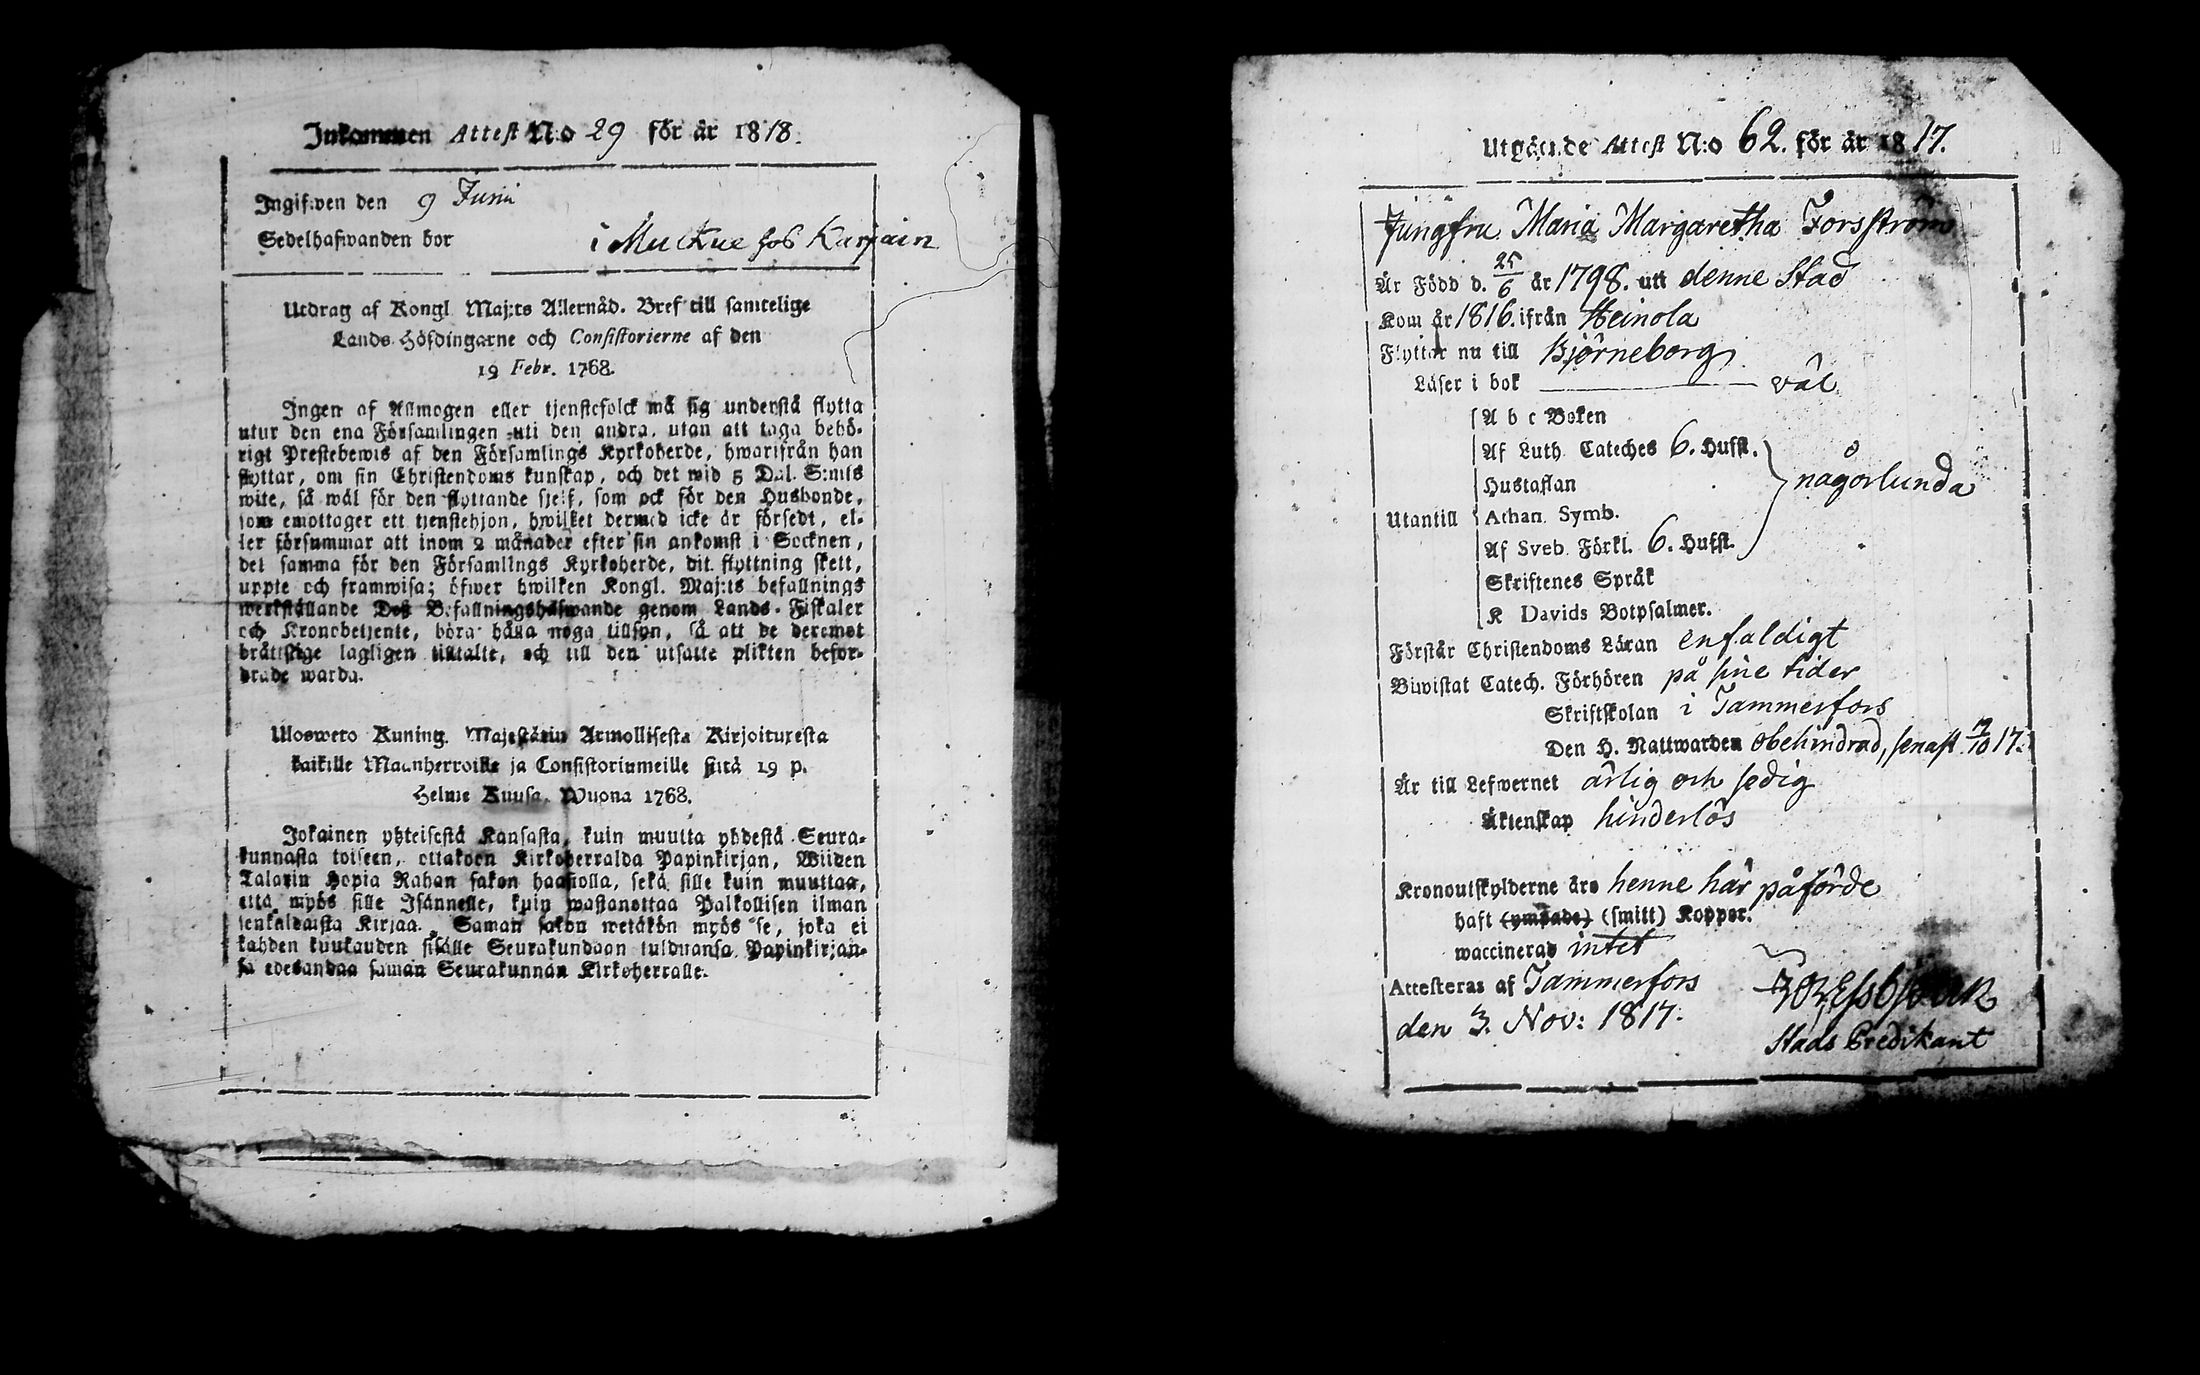 Inkommen Attest N:o 29 för år 1818.
Ingifwen den 9 Junii
Sedelhafwanden bor i Muckue hos Karjain
Utdrag af Kongl. Maj:ts Allernåd. Bref till samtelige
Lands-Höfdingarne och Consistorierne af den
19 Febr. 1768.
Ingen af Allmogen eller tjenstefolck må sig understå flytta
utur den ena Församlingen uti den andra, utan att taga behö-
rigt Prestebewis af den Församlings Kyrkoherde, hwarifrån han
flyttar, om sin Christendoms kunskap, och det wid 5 Dal. S:mts
wite, så wäl för den flyttande sjelf, som ock för den Husbonde,
som emottager ett tjenstehjon, hwilket dermed icke är försedt, el-
ler försummar att inom 2 månader efter sin ankomst i Socknen,
det samma för den Församlings Kyrkoherde, dit flyttning skett,
uppte och framwisa; öfwer hwilken Kongl. Maj:ts befallnings
werkställande Deß Befallningshafwande genom Lands-Fiskaler
och Kronobetjente, böra hålla noga tillsyn, så att de deremot
bråttslige lagligen tilltalte, och till den utsatte plikten befor-
drade warda.
Uloswето Kuning. Majestätin Armollisesta Kirjoituxesta
kaikille Maanherroille ja Consistoriumeille siitä 19 p.
Helme Kuusa. Wuona 1768.
Jokainen yhteisestä Kansasta, kuin muutta yhdestä Seura-
kunnasta toiseen, ottakoon Kirkoherralda Papinkirjan, Wiiden
Talarin Hopia Rahan sakon haastolla, sekä sille kuin muuttaa,
että myös sille Isännelle, kuin wastanottaa Palkollisen ilman
senkaldaista Kirjaa. Saman sakon wetäkön myös se, joka ei
kahden kuukauden sisälle Seurakundaan tulduansa Papinkirjan-
sa edesandaa saman Seurakunnan Kirkoherralle.
Utgående Attest N:o 62. för år 1817.
Jungfru Maria Margaretha Forsström
Är Född d. 25/6 år 1798. uti denne Stad
Kom år 1816. ifrån Heinola
Flyttar nu till Björneborg
Läser i bok wäl
A b c Boken
Af Luth. Cateches 6. Hufst.
Hustaflan
någorlunda
Utantill Athan. Symb.
Af Sveb. Förkl. 6. Hufst.
Skriftenes Språk
K Davids Botpsalmer.
Förstår Christendoms Läran enfaldigt
Biwistat Catech. Förhören på sine tider
Skriftskolan i Tammerfors
Den H. Nattwarden obehindrad, senast /10 17.
Är till Lefwernet ärlig och sedig
Äktenskap hinderlös
Kronoutskylderne äro henne här påförde
haft (ympade) (smitt) Koppor.
waccinerad intet
Attesteras af Tammerfors
den 3. Nov: 1817.
Stads Predikant